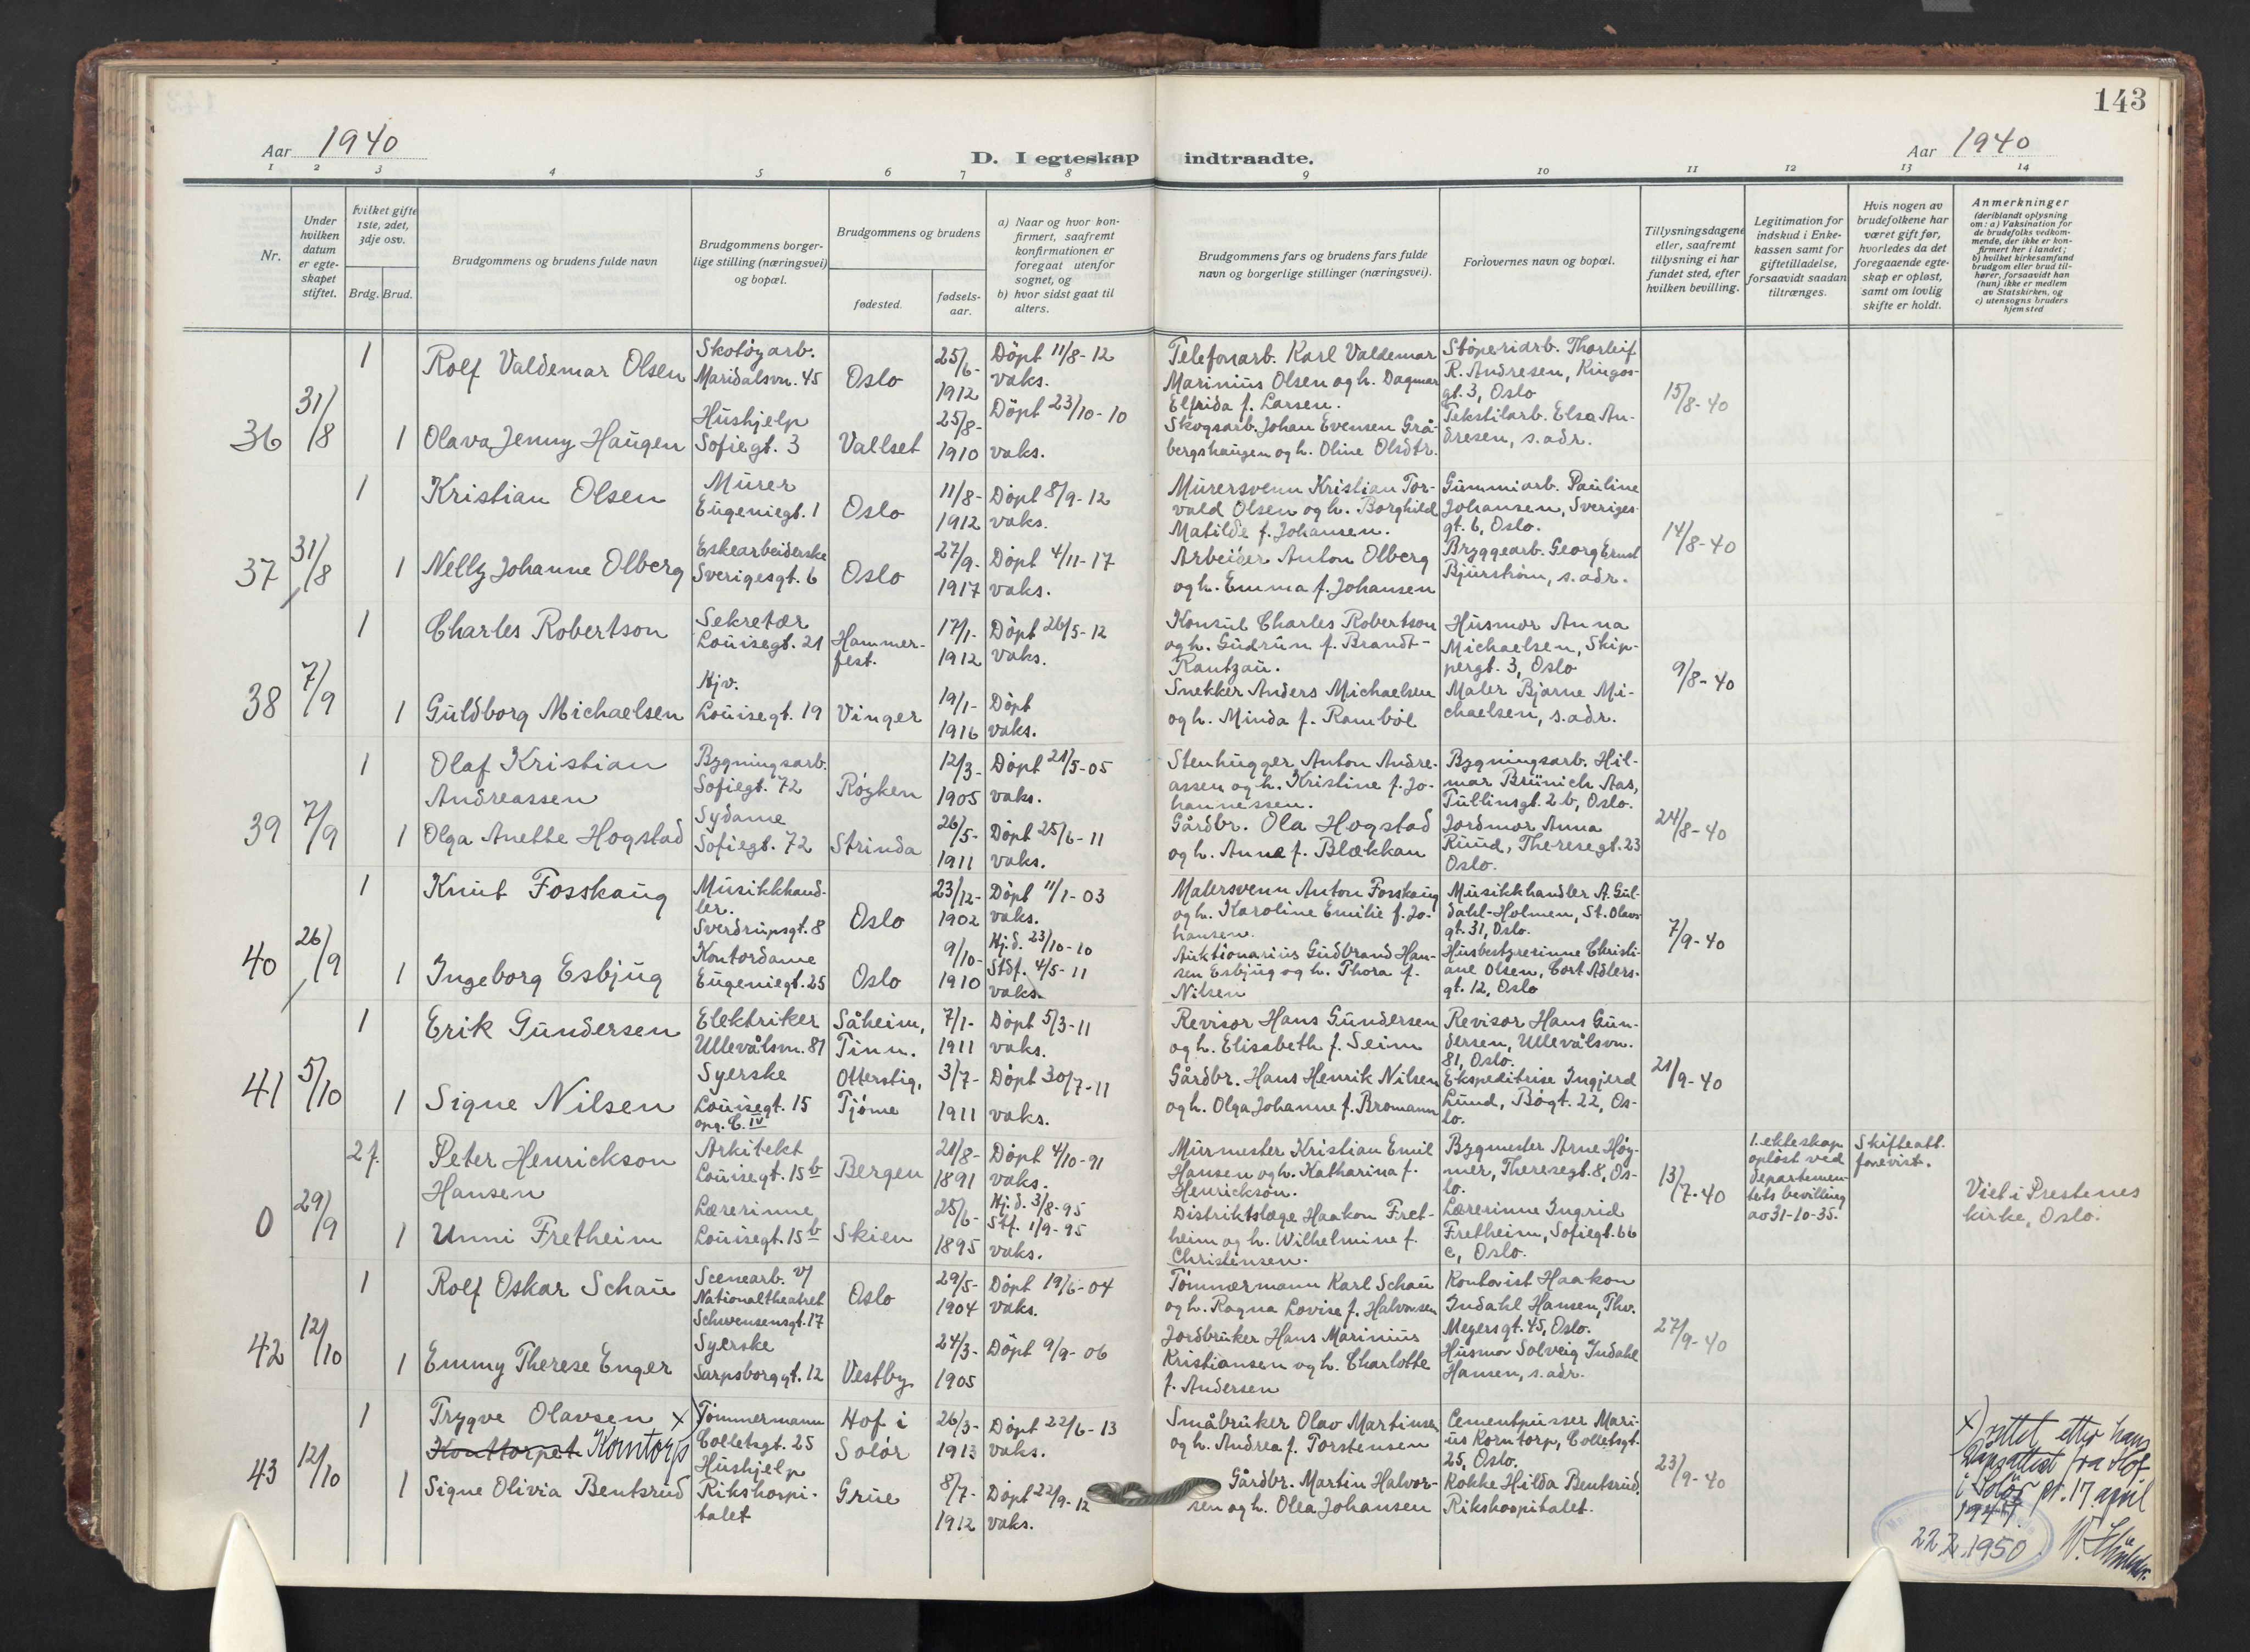 143
Aar 1940
D. I egteskap indtraadte.
Aar 1940
1 2 3 4 5 6 7 8 9 10 11 12 13 14
Nr.
Under
hvilken
datum
er egte-
skapet
stiftet.
hvilket gifte
1ste, 2det,
3dje osv.
Brdg. Brud.
Brudgommens og brudens fulde navn
Brudgommens borger-
lige stilling (næringsvei)
og bopæl.
Brudgommens og brudens
fødested.
fødsels-
aar.
a) Naar og hvor kon-
firmert, saafremt
konfirmationen er
foregaat utenfor
sognet, og
b) hvor sidst gaat til
alters.
Brudgommens fars og brudens fars fulde
navn og borgerlige stillinger (næringsvei).
Forlovernes navn og bopæl.
Tillysningsdagene
eller, saafremt
tillysning ei har
fundet sted, efter
hvilken bevilling.
Legitimation for
indskud i Enke-
kassen samt for
giftetilladelse,
forsaavidt saadan
tiltrænges.
Hvis nogen av
brudefolkene har
været gift før,
hvorledes da det
foregaaende egte-
skap er opløst,
samt om lovlig
skifte er holdt.
Anmerkninger
(deriblandt oplysning
om: a) Vaksination for
de brudefolks vedkom-
mende, der ikke er kon-
firmert her i landet;
b) hvilket kirkesamfund
brudgom eller brud til-
hører, forsaavidt han
(hun) ikke er medlem
av Statskirken, og
c) utensogns bruders
hjemsted
36
31/8
1
Rolf Valdemar Olsen
Skotøyarb.
Maridalsvn. 45
Oslo
25/6-
1912
Döpt 11/8-12
vaks.
Telefonarb. Karl Valdemar
Marinius Olsen og h. Dagmar
Elfrida f. Larsen.
Støperiarb. Thorleif
R. Andresen, Kingos-
gt. 3, Oslo
15/8-40
1
Olava Jenny Haugen
Hushjelp
Sofiegt. 3
Vallset
25/8-
1910
Döpt 23/10-10
vaks.
Skogsarb. Johan Evensen Grå-
bergshaugen og h. Oline Olsdtr.
Tekstilarb. Elsa An-
dresen, s. adr.
37
31/8
1
Kristian Olsen
Murer
Eugeniegt. 1
Oslo
11/8-
1912
Döpt 8/9-12
vaks.
Murersvenn Kristian Tor-
vald Olsen og h. Borghild
Matilde f. Johansen.
Gummiarb. Pauline
Johansen, Sveriges-
gt. 6, Oslo.
14/8-40
1
Nelly Johanne Olberg
Eskearbeiderske
Sverigesgt. 6
Oslo
27/9-
1917
Döpt 4/11-17
vaks.
Arbeider Anton Olberg
og h. Emma f. Johansen
Bryggearb. Georg Ernst
Bjurstrøm, s. adr.
38
7/9
1
Charles Robertson
Sekretær
Louisegt. 21
Hammer-
fest.
17/1-
1912
Döpt 26/5-12
vaks.
Konsul Charles Robertson
og h. Gudrun f. Brandt-
Rantzau.
Husmor Anna
Michaelsen, Skip-
pergt. 3, Oslo
9/8-40
1
Guldborg Michaelsen
Hjv.
Louisegt. 19
Vinger
19/1-
1916
Döpt
vaks.
Snekker Anders Michaelsen
og h. Minda f. Rambøl
Maler Bjarne Mi-
chaelsen, s. adr.
39
7/9
1
Olaf Kristian
Andreassen
Bygningsarb.
Sofiegt. 72
Røyken
12/3-
1905
Döpt 21/5-05
vaks.
Stenhugger Anton Andre-
assen og h. Kristine f. Jo-
hannessen.
Bygningsarb. Hil-
mar Brünich Aas,
Tullinsgt. 2 b, Oslo.
24/8-40
1
Olga Anette Hogstad
Sydame
Sofiegt. 72
Strinda
26/5-
1911
Döpt 25/6-11
vaks.
Gårdbr. Ola Hogstad
og h. Anna f. Blækkan
Jordmor Anna
Ruud, Theresegt. 23
Oslo.
40
26/9
1
Knut Fosskaug
Musikkhand-
ler.
Sverdrupsgt. 8
Oslo
23/12-
1902
Döpt 11/1-03
vaks.
Malersvenn Anton Fosskaug
og h. Karoline Emilie f. Jo-
hansen.
Musikkhandler A. Gul-
dahl-Holmen, St. Olavs-
gt. 31, Oslo.
7/9-40
1
Ingeborg Esbjug
Kontordame
Eugeniegt. 25
Oslo
9/10-
1910
Hj.d. 23/10-10
Stdf. 4/5-11
vaks.
Auktionarius Gudbrand Han-
sen Esbjug og h. Thora f.
Nilsen
Husbestyrerinne Christi-
ane Olsen, Cort Adlers-
gt. 12, Oslo
41
5/10
1
Erik Gundersen
Elektriker
Ullevålsvn. 81
Såheim,
Tinn.
7/1-
1911
Döpt 5/3-11
vaks.
Revisor Hans Gundersen
og h. Elisabeth f. Seim
Revisor Hans Gun-
dersen, Ullevålsvn.
81, Oslo.
21/9-40
1
Signe Nilsen
Syerske
Louisegt. 15
opg. C. IV
Otterstig,
Tjöme
3/7-
1911
Döpt 30/7-11
vaks.
Gårdbr. Hans Henrik Nilsen
og h. Olga Johanne f. Bromann
Ekspeditrise Ingjerd
Lund, Bögt. 22, Os-
lo.
0
29/9
2 f.
Peter Henrickson
Hansen
Arkitekt
Louisegt. 15 b
Bergen
21/8-
1891
Döpt 4/10-91
vaks.
Murmester Kristian Emil
Hansen og h. Katharina f.
Henrickson.
Bygmester Arne Høy-
mer, Theresegt. 8, Os-
lo.
13/7-40
1. ekteskap
opløst ved
departemen-
tets bevilling
av 31-10-35.
Skifteatt.
forevist.
Viet i Prestenes
kirke, Oslo.
1
Unni Fretheim
Lærerinne
Louisegt. 15 b
Skien
25/6-
1895
Hj.d. 3/8-95
Stf. 1/9-95
vaks.
Distriktslæge Haakon Fret-
heim og h. Wilhelmine f.
Christensen.
Lærerinne Ingrid
Fretheim, Sofiegt. 66
c, Oslo.
42
12/10
1
Rolf Oskar Schau
Scenearb. v/
Nationaltheatret
Schwensensgt. 17
Oslo
29/5-
1904
Döpt 19/6-04
vaks.
Tömmermann Karl Schau
og h. Ragna Lovise f. Halvorsen
Kontorist Haakon
Indahl Hansen, Thv.
Meyersgt. 45, Oslo.
27/9-40
1
Emmy Therese Enger
Syerske
Sarpsborggt. 12
Vestby
24/3-
1905
Döpt 9/9-06
Jordbruker Hans Marinius
Kristiansen og h. Charlotte
f. Andersen
Husmor Solveig Indahl
Hansen, s. adr.
43
12/10
1
Trygve Olavsen x)
Konttorpet Korntorp
Tømmermann
Colletsgt. 25
Hof i
Solör
26/3-
1913
Döpt 22/6-13
vaks.
Småbruker Olav Martinsen
og h. Andrea f. Torstensen
Cementpusser Mari-
us Korntorp, Colletsgt.
25, Oslo.
23/9-40
x) rettet etter hans
dåpsattest fra Hof
i Solör pr. 17 april
22.2.1950
1
Signe Olivia Bentsrud
Hushjelp
Rikshospi-
talet
Grue
8/7-
1912
Döpt 22/9-12
vaks.
Gårdbr. Martin Halvor-
sen og h. Olea Johansen
Kokke Hilda Bentsrud,
Rikshospitalet.